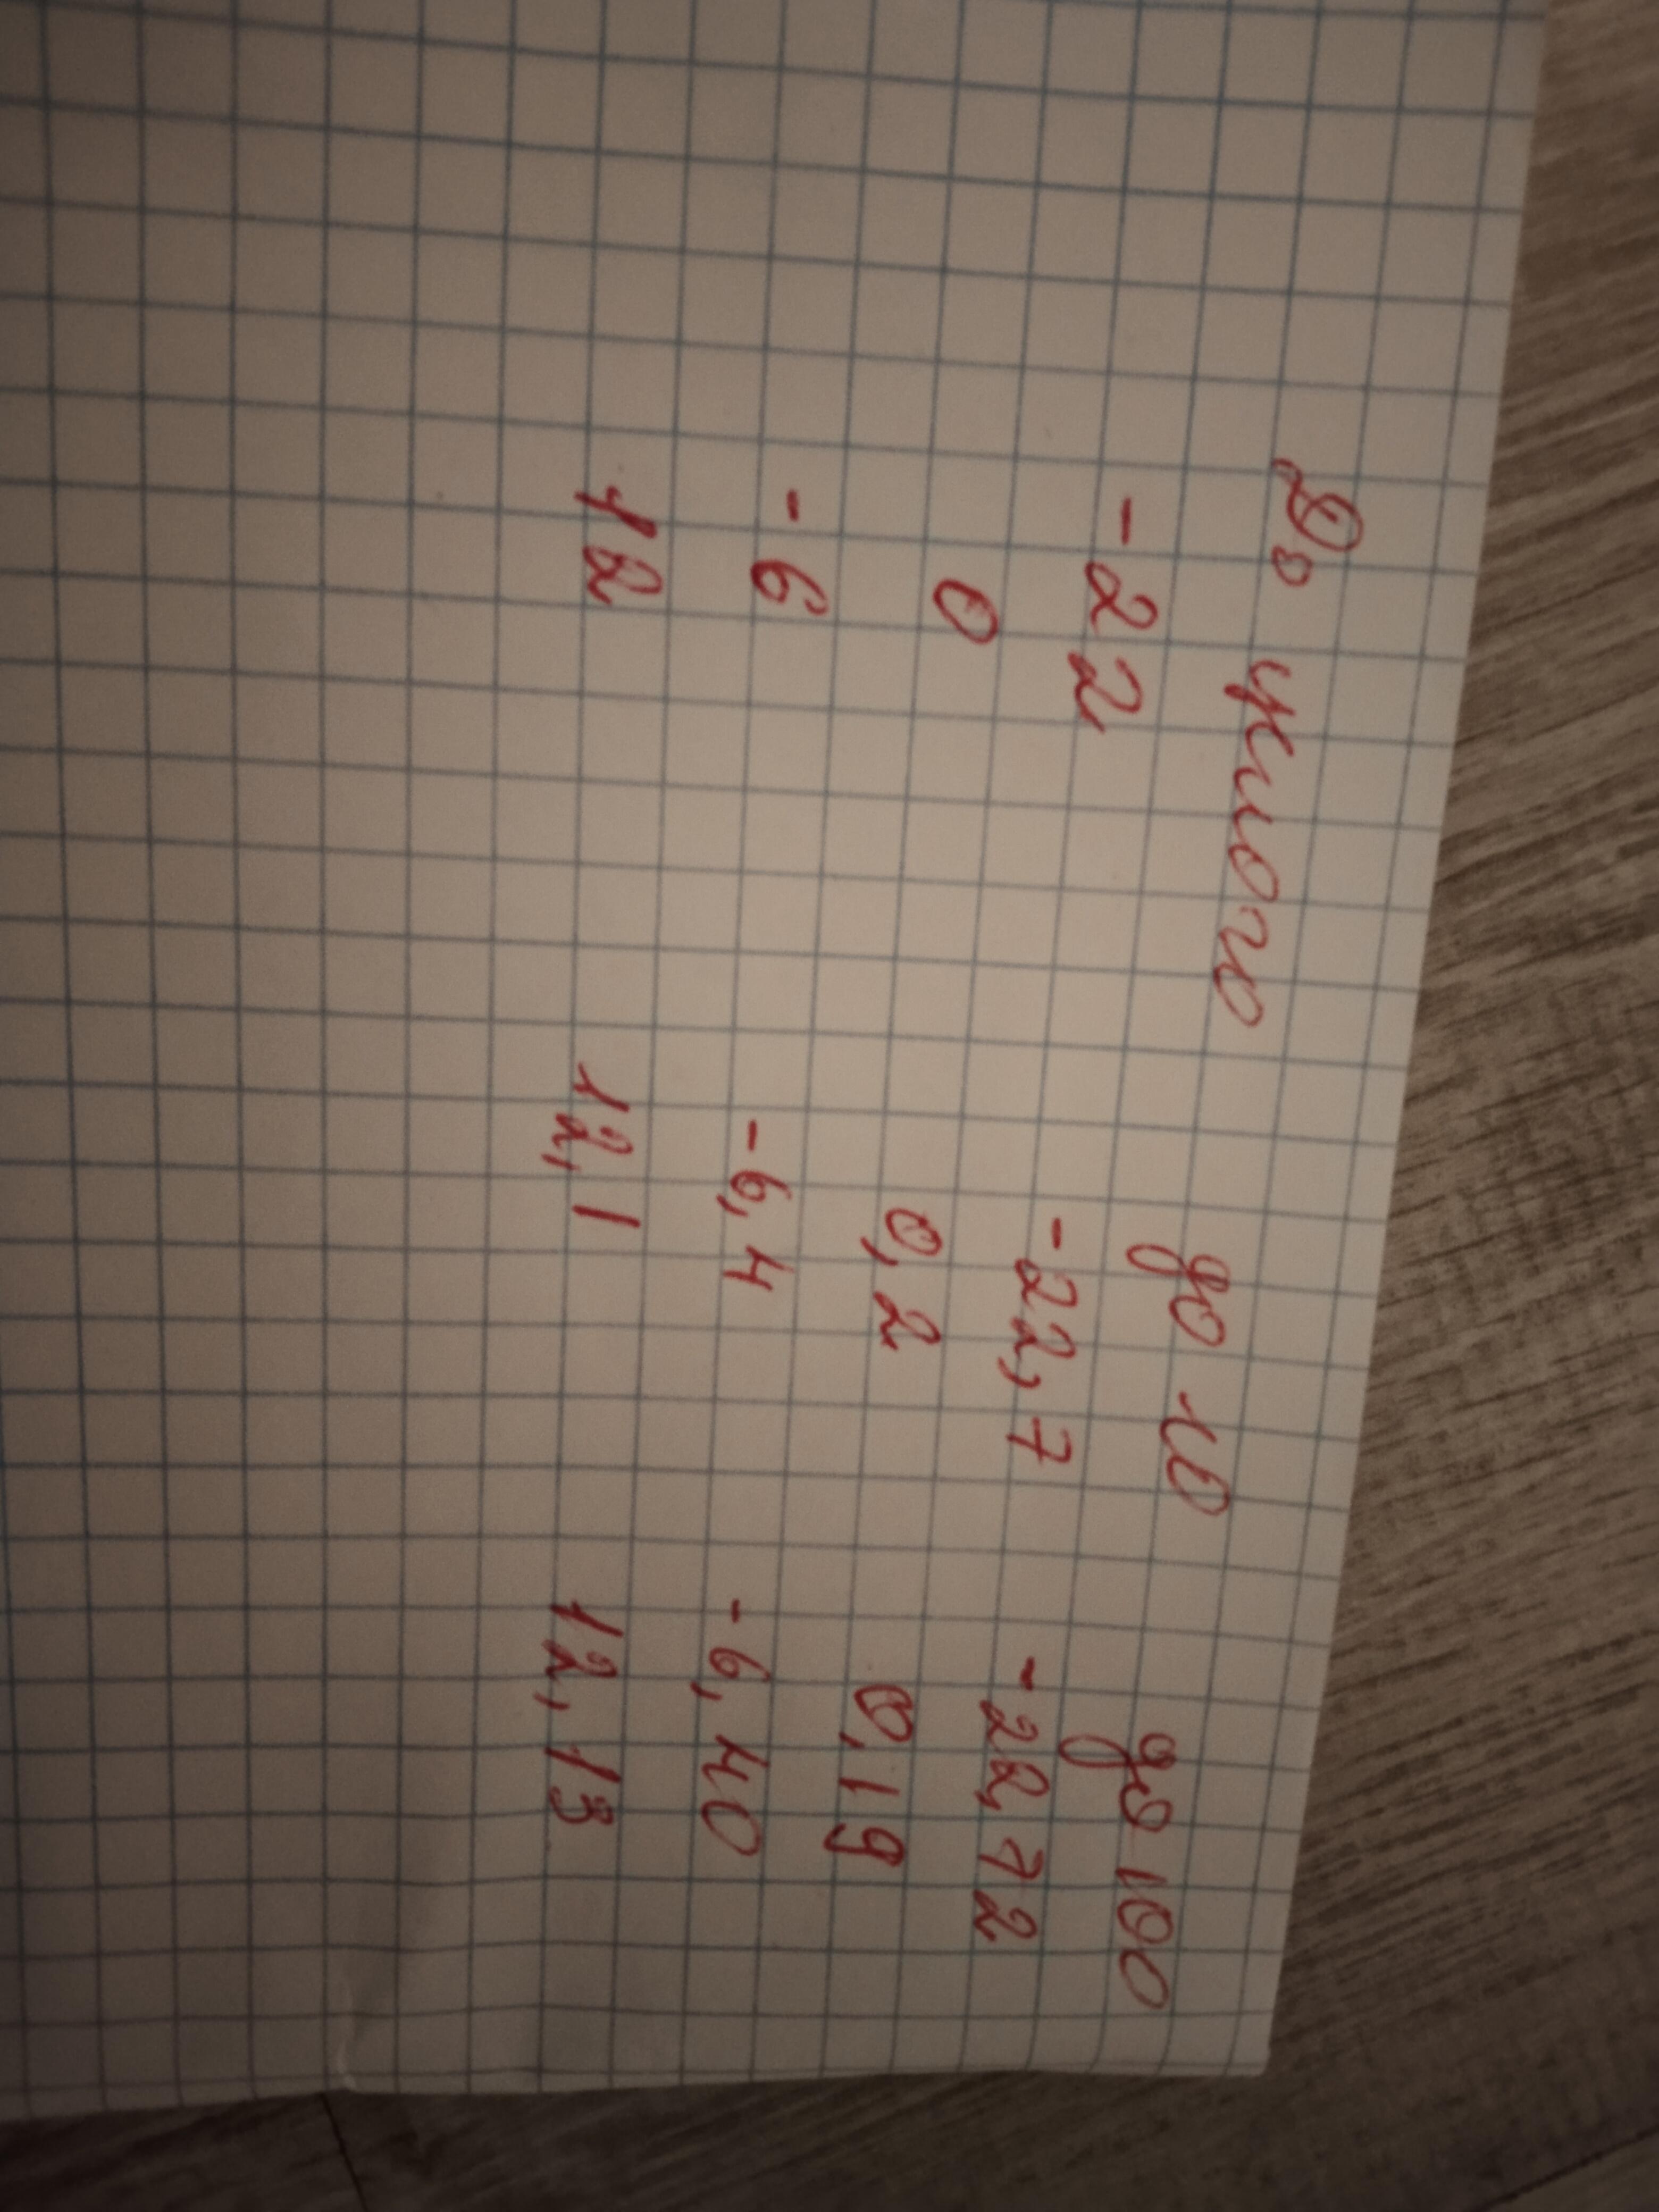 До целого до 10 до 100
-22 -22,7 -22,72
0 0,2 0,19
-6 -6,4 -6,40
12 12,1 12,13